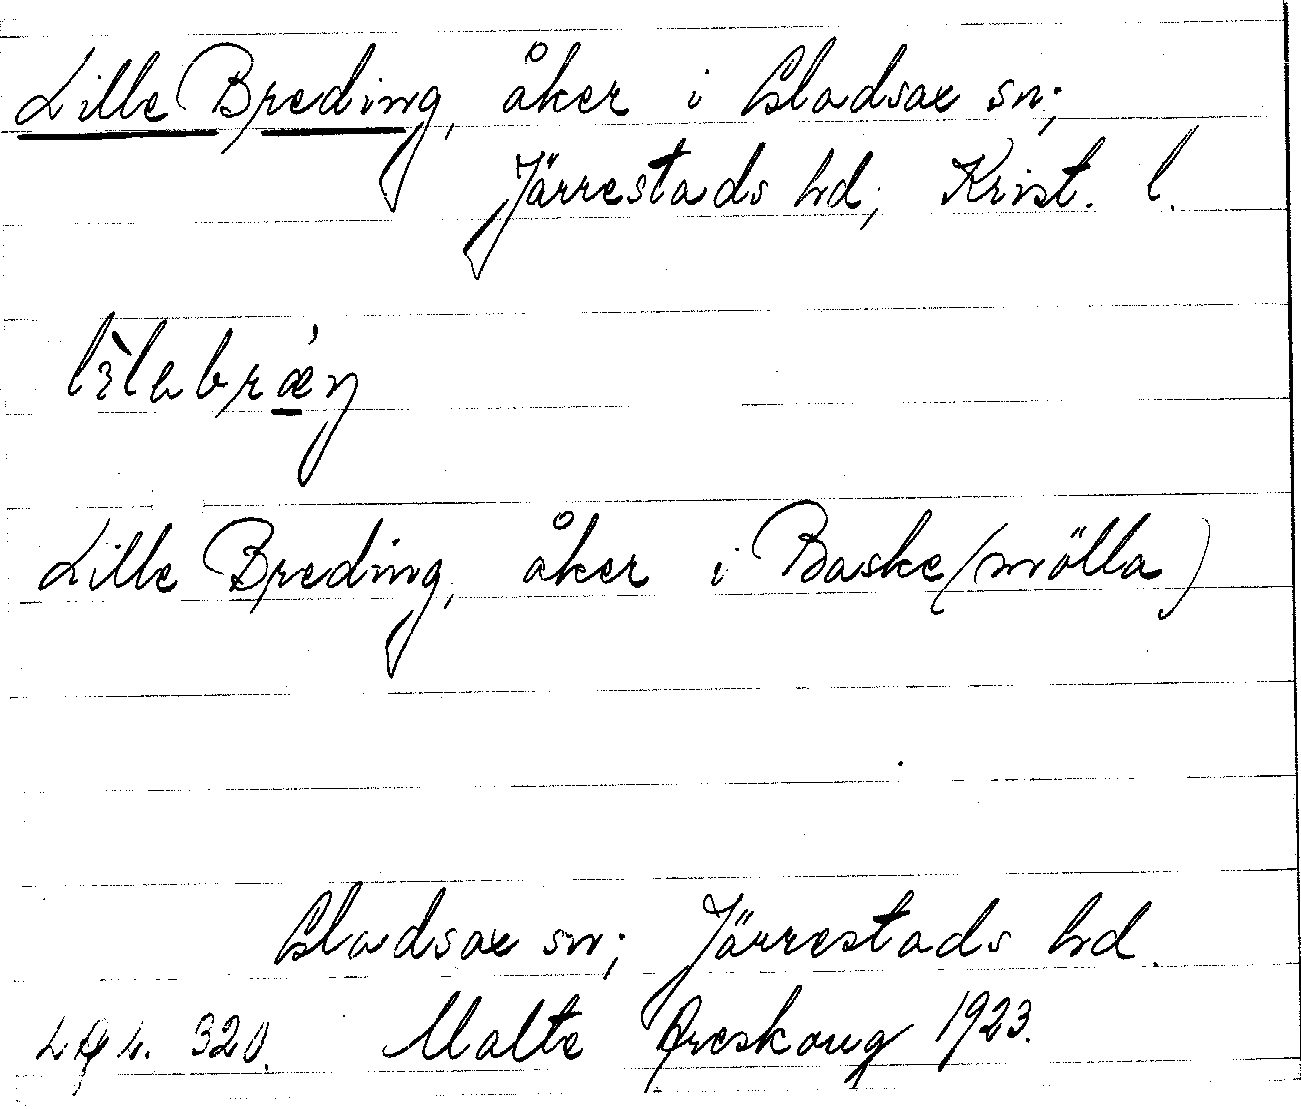 Lille Breding, åker i Gladsax sn;
Järrestads hd; Krist. l.
Lille Breding, åker i Baske(mölla)
Gladsax sn; Järrestads hd.
320. Malte Areskoug 1923.